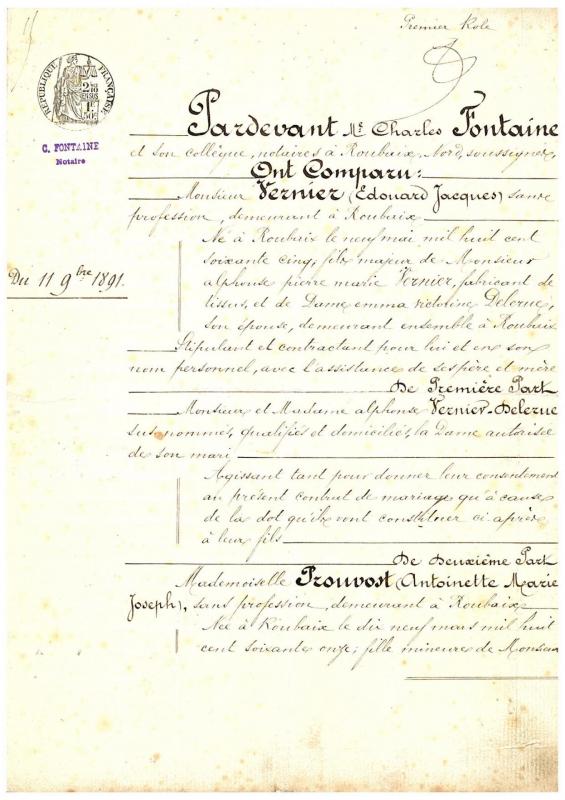 Premier Role
RÉPUBLIQUE FRANÇAISE
C. FONTAINE
Notaire
Pardevant Me Charles Fontaine
et son collègue, notaires à Roubaix, Nord, soussignés,
Ont Comparu:
Monsieur Vernier (Edouard Jacques) sans
profession, demeurant à Roubaix
Né à Roubaix le neuf mai mil huit cent
soixante cinq; fils majeur de Monsieur
alphonse pierre marie Vernier, fabricant de
tissus, et de Dame emma victorine Delerue,
son épouse, demeurant ensemble à Roubaix
Du 11 9bre 1891.
Stipulant et contractant pour lui et en son
nom personnel, avec l'assistance de ses père et mère
De Première Part
Monsieur et Madame alphonse Vernier-Delerue
sus nommés, qualifiés et domiciliés, la Dame autorisée
de son mari
Agissant tant pour donner leur consentement
au présent contrat de mariage qu'à cause
de la dot qu'ils vont constituer ci après
à leur fils
De Deuxième Part
Mademoiselle Prouvost (Antoinette Marie
Joseph), sans profession, demeurant à Roubaix
Née à Roubaix le dix neuf mars mil huit
cent soixante onze; fille mineure de Monsieur